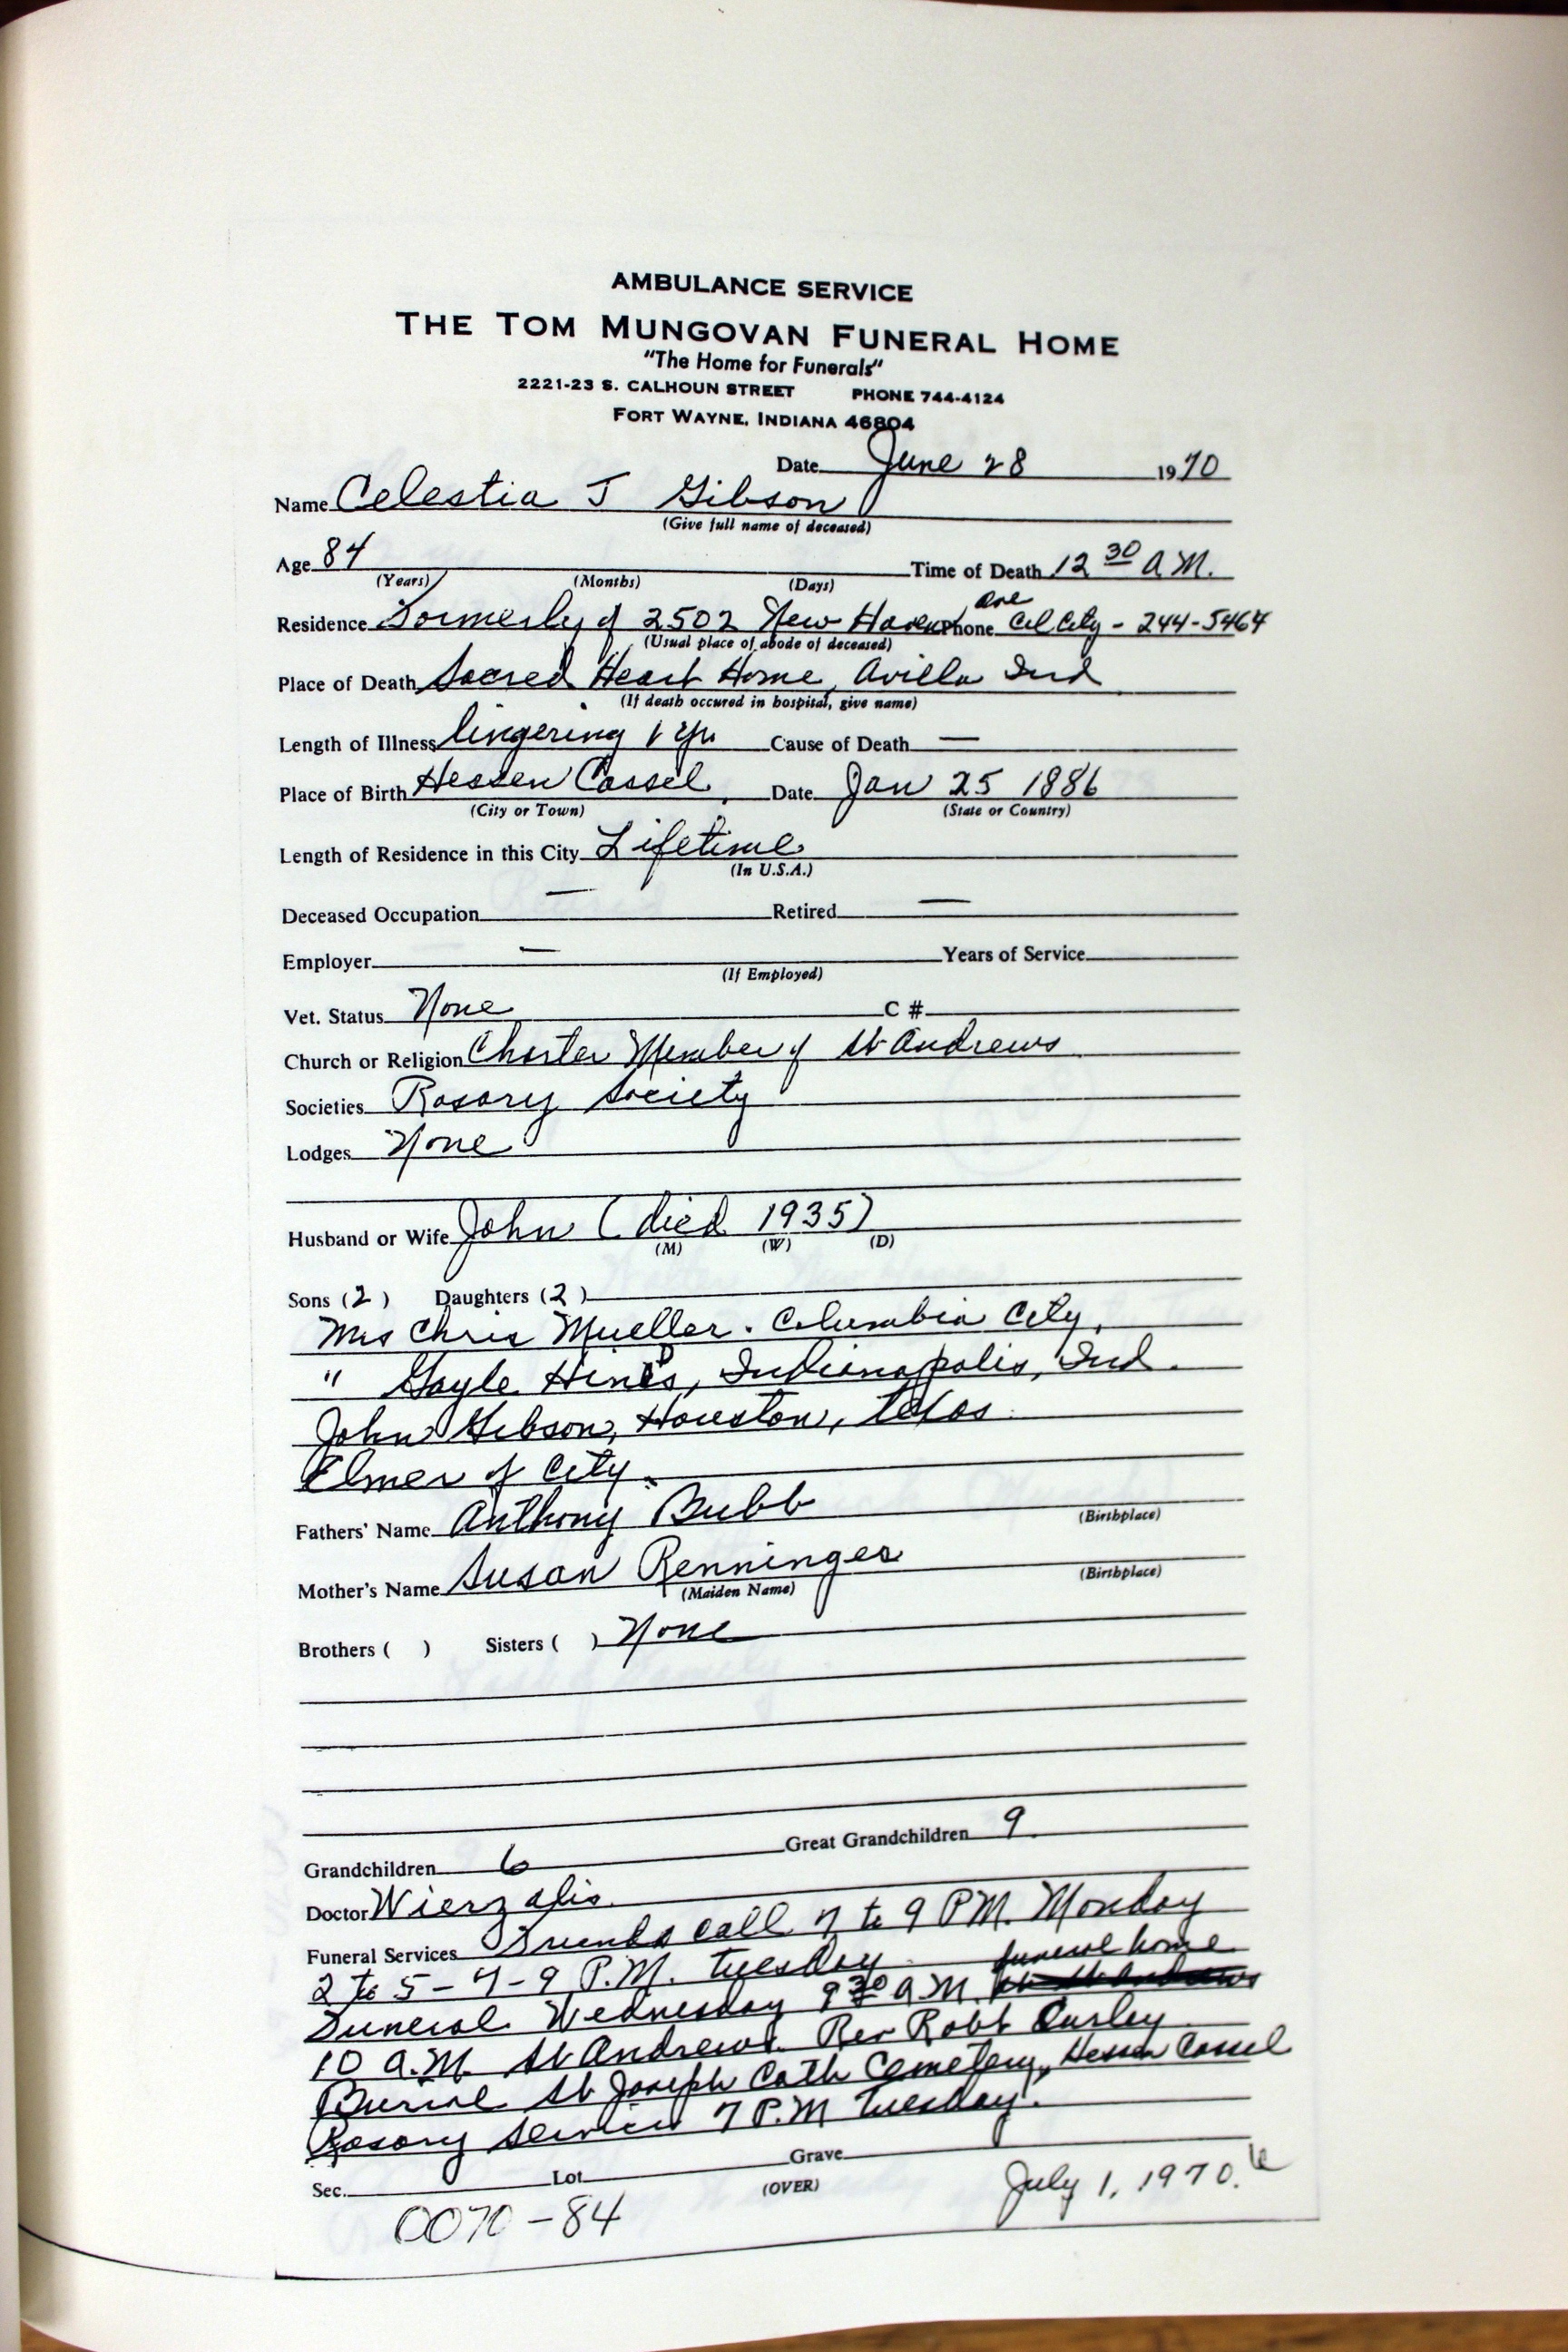 AMBULANCE SERVICE
THE TOM MUNGOVAN FUNERAL HOME
"The Home for Funerals"
2221-23 S. CALHOUN STREET PHONE 744-4124
FORT WAYNE, INDIANA 46804
Date June 28 1970
Name Celestia J Gibson
(Give full name of deceased)
Age 84 Time of Death 12 30 A.M.
(Years) (Months) (Days)
Residence Formerly of 2502 New Haven Ave Phone Col City - 244-5464
(Usual place of abode of deceased)
Place of Death Sacred Heart Home, Avilla Ind
(If death occured in hospital, give name)
Length of Illness lingering 1 yr Cause of Death —
Place of Birth Hessen Cassel, Date Jan 25 1886
(City or Town) (State or Country)
Length of Residence in this City Lifetime
(In U.S.A.)
Deceased Occupation — Retired —
Employer — Years of Service
(If Employed)
Vet. Status None C #
Church or Religion Charter Member of St Andrews
Societies Rosary Society
Lodges None
Husband or Wife John (died 1935)
(M) (W) (D)
Sons (2) Daughters (2)
Mrs Chris Mueller. Columbia City,
" Gayle Hines, Indianapolis, Ind.
John Gibson, Houston, Texas.
Elmer of City.
Fathers' Name Anthony Bubb
(Birthplace)
Mother's Name Susan Renninger
(Maiden Name) (Birthplace)
Brothers ( ) Sisters ( ) None
Grandchildren 6 Great Grandchildren 9
Doctor Wierzalis
Funeral Services Friends call 7 to 9 P.M. Monday
2 to 5 - 7-9 P.M. Tuesday
Funeral Wednesday 9 30 A.M. funeral home
10 A.M. St Andrews. Rev Robt
Burial St Joseph Cath Cemetery, Hessen Cassel
Rosary Service 7 P.M Tuesday.
Sec. Lot Grave
(OVER)
0070-84 July 1, 1970.